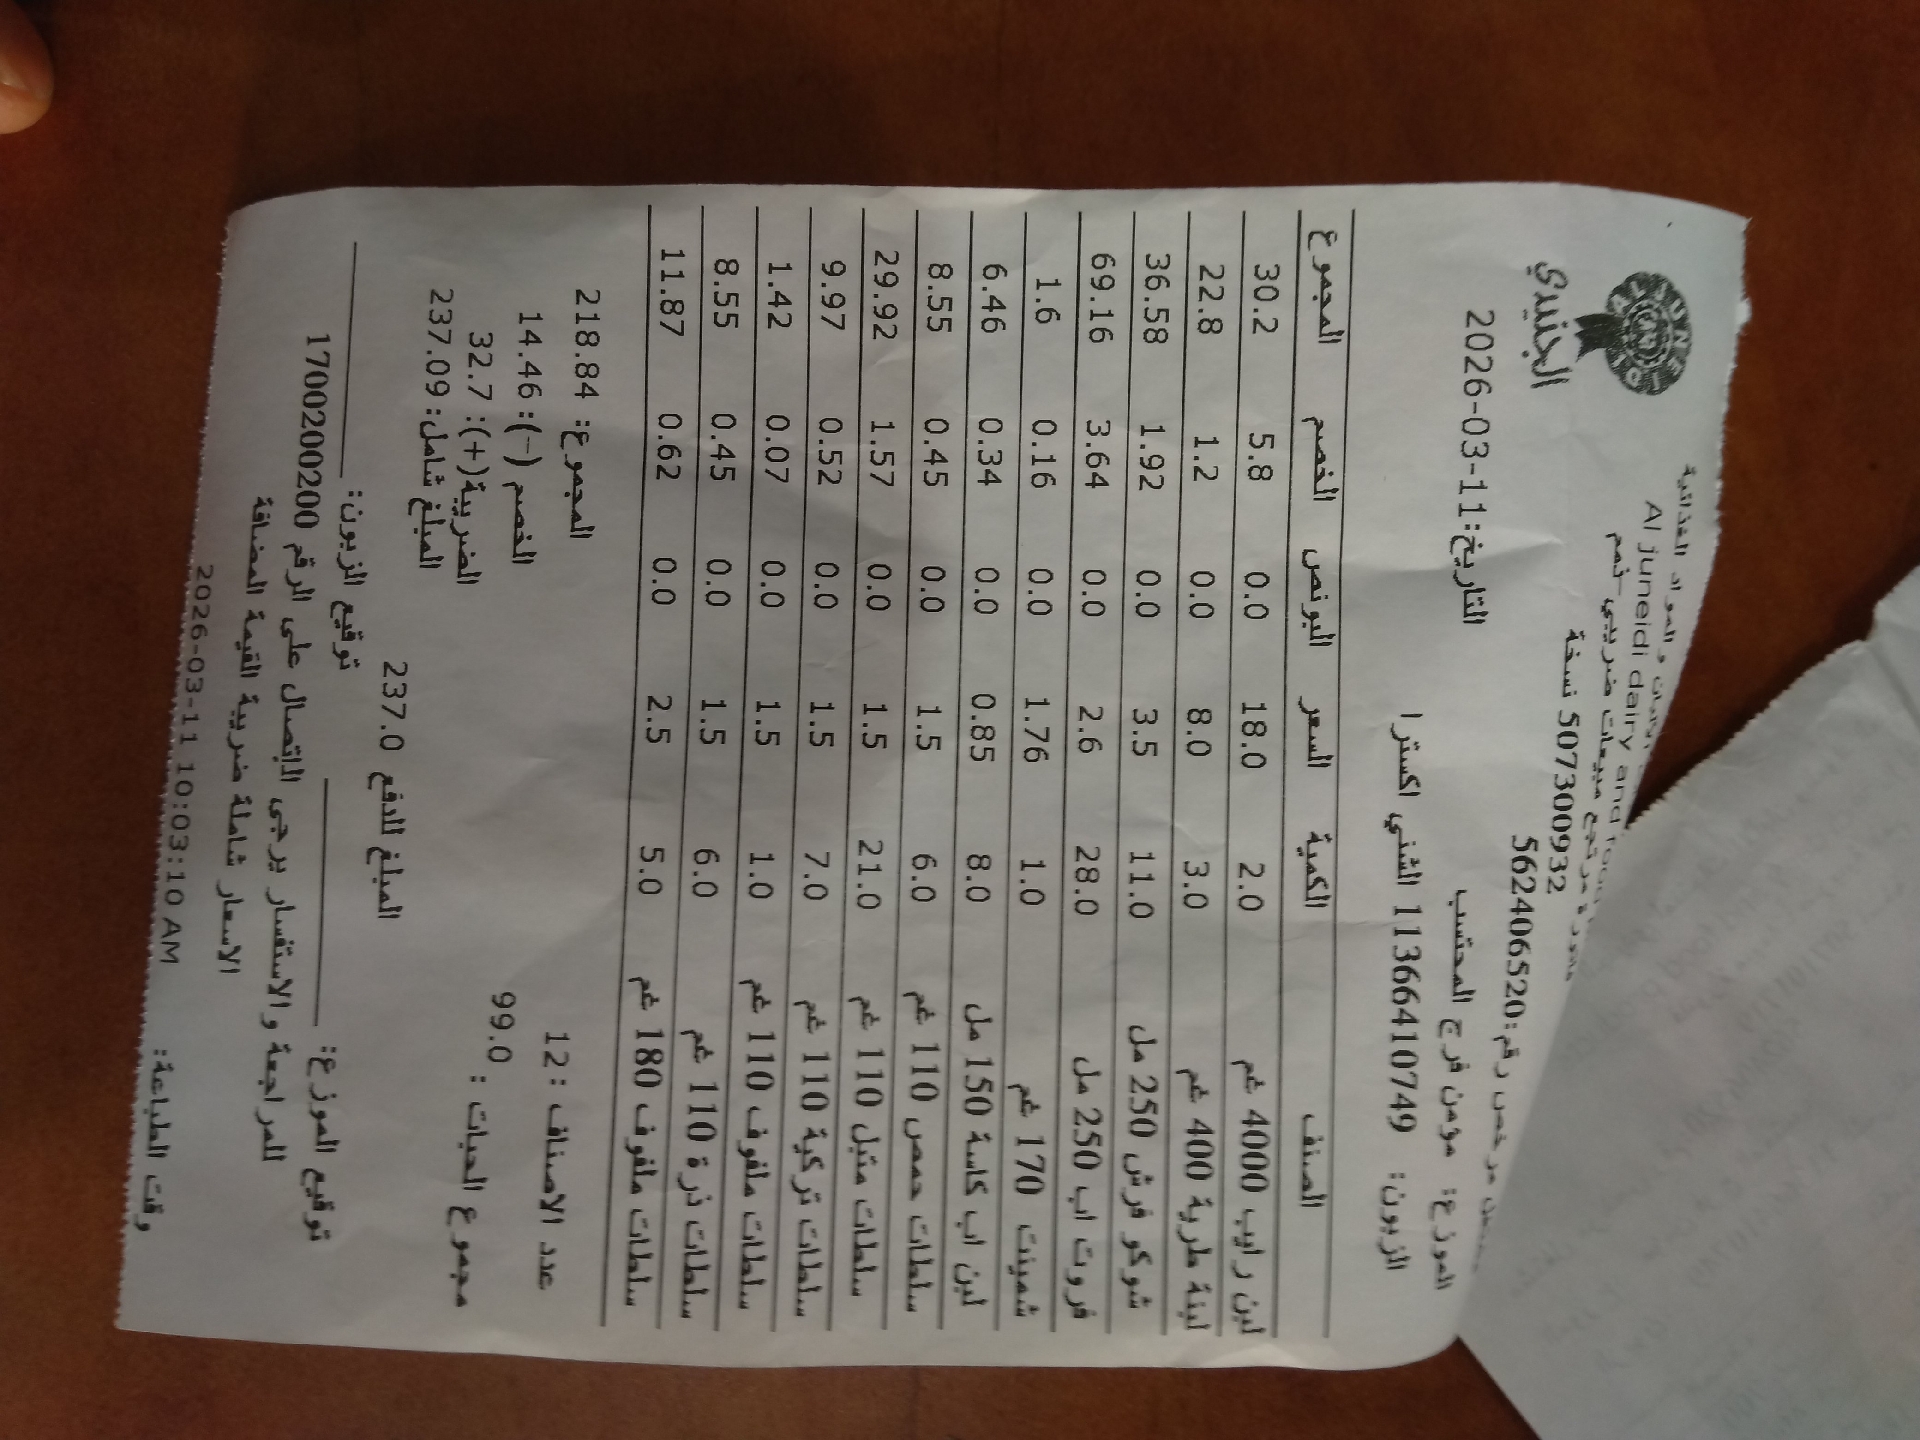 الجنيدي
والمواد الغذائية
Al juneidi dairy and
مبيعات ضريبي تمم
507300932 نسخة
مرخص رقم:562406520
التاريخ:2026-03-11
الموزع: مؤمن فرح المحتسب
الزبون: 1136641٠749 الشني اكسترا
الصنف الكمية السعر البونص الخصم المجموع
لبن رايب 4000 غم 2.0 18.0 0.0 5.8 30.2
لبنة طرية 400 غم 3.0 8.0 0.0 1.2 22.8
شوكو فرش 250 مل 11.0 3.5 0.0 1.92 36.58
فروت اب 250 مل 28.0 2.6 0.0 3.64 69.16
شمينت 170 غم 1.0 1.76 0.0 0.16 1.6
لبن اب كاسة 150 مل 8.0 0.85 0.0 0.34 6.46
سلطات حمص 110 غم 6.0 1.5 0.0 0.45 8.55
سلطات متبل 110 غم 21.0 1.5 0.0 1.57 29.92
سلطات تركية 110 غم 7.0 1.5 0.0 0.52 9.97
سلطات ملفوف 110 غم 1.0 1.5 0.0 0.07 1.42
سلطات ذرة 110 غم 6.0 1.5 0.0 0.45 8.55
سلطات ملفوف 180 غم 5.0 2.5 0.0 0.62 11.87
المجموع: 218.84
عدد الاصناف : 12 الخصم (-): 14.46
الضريبة(+): 32.7
مجموع الحبات : 99.0 المبلغ شامل: 237.09
المبلغ للدفع 237.0
توقيع الموزع: توقيع الزبون:
للمراجعة والاستفسار يرجى الاتصال على الرقم 1700200200
الاسعار شاملة ضريبة القيمة المضافة
وقت الطباعة: 2026-03-11 10:03:10 AM